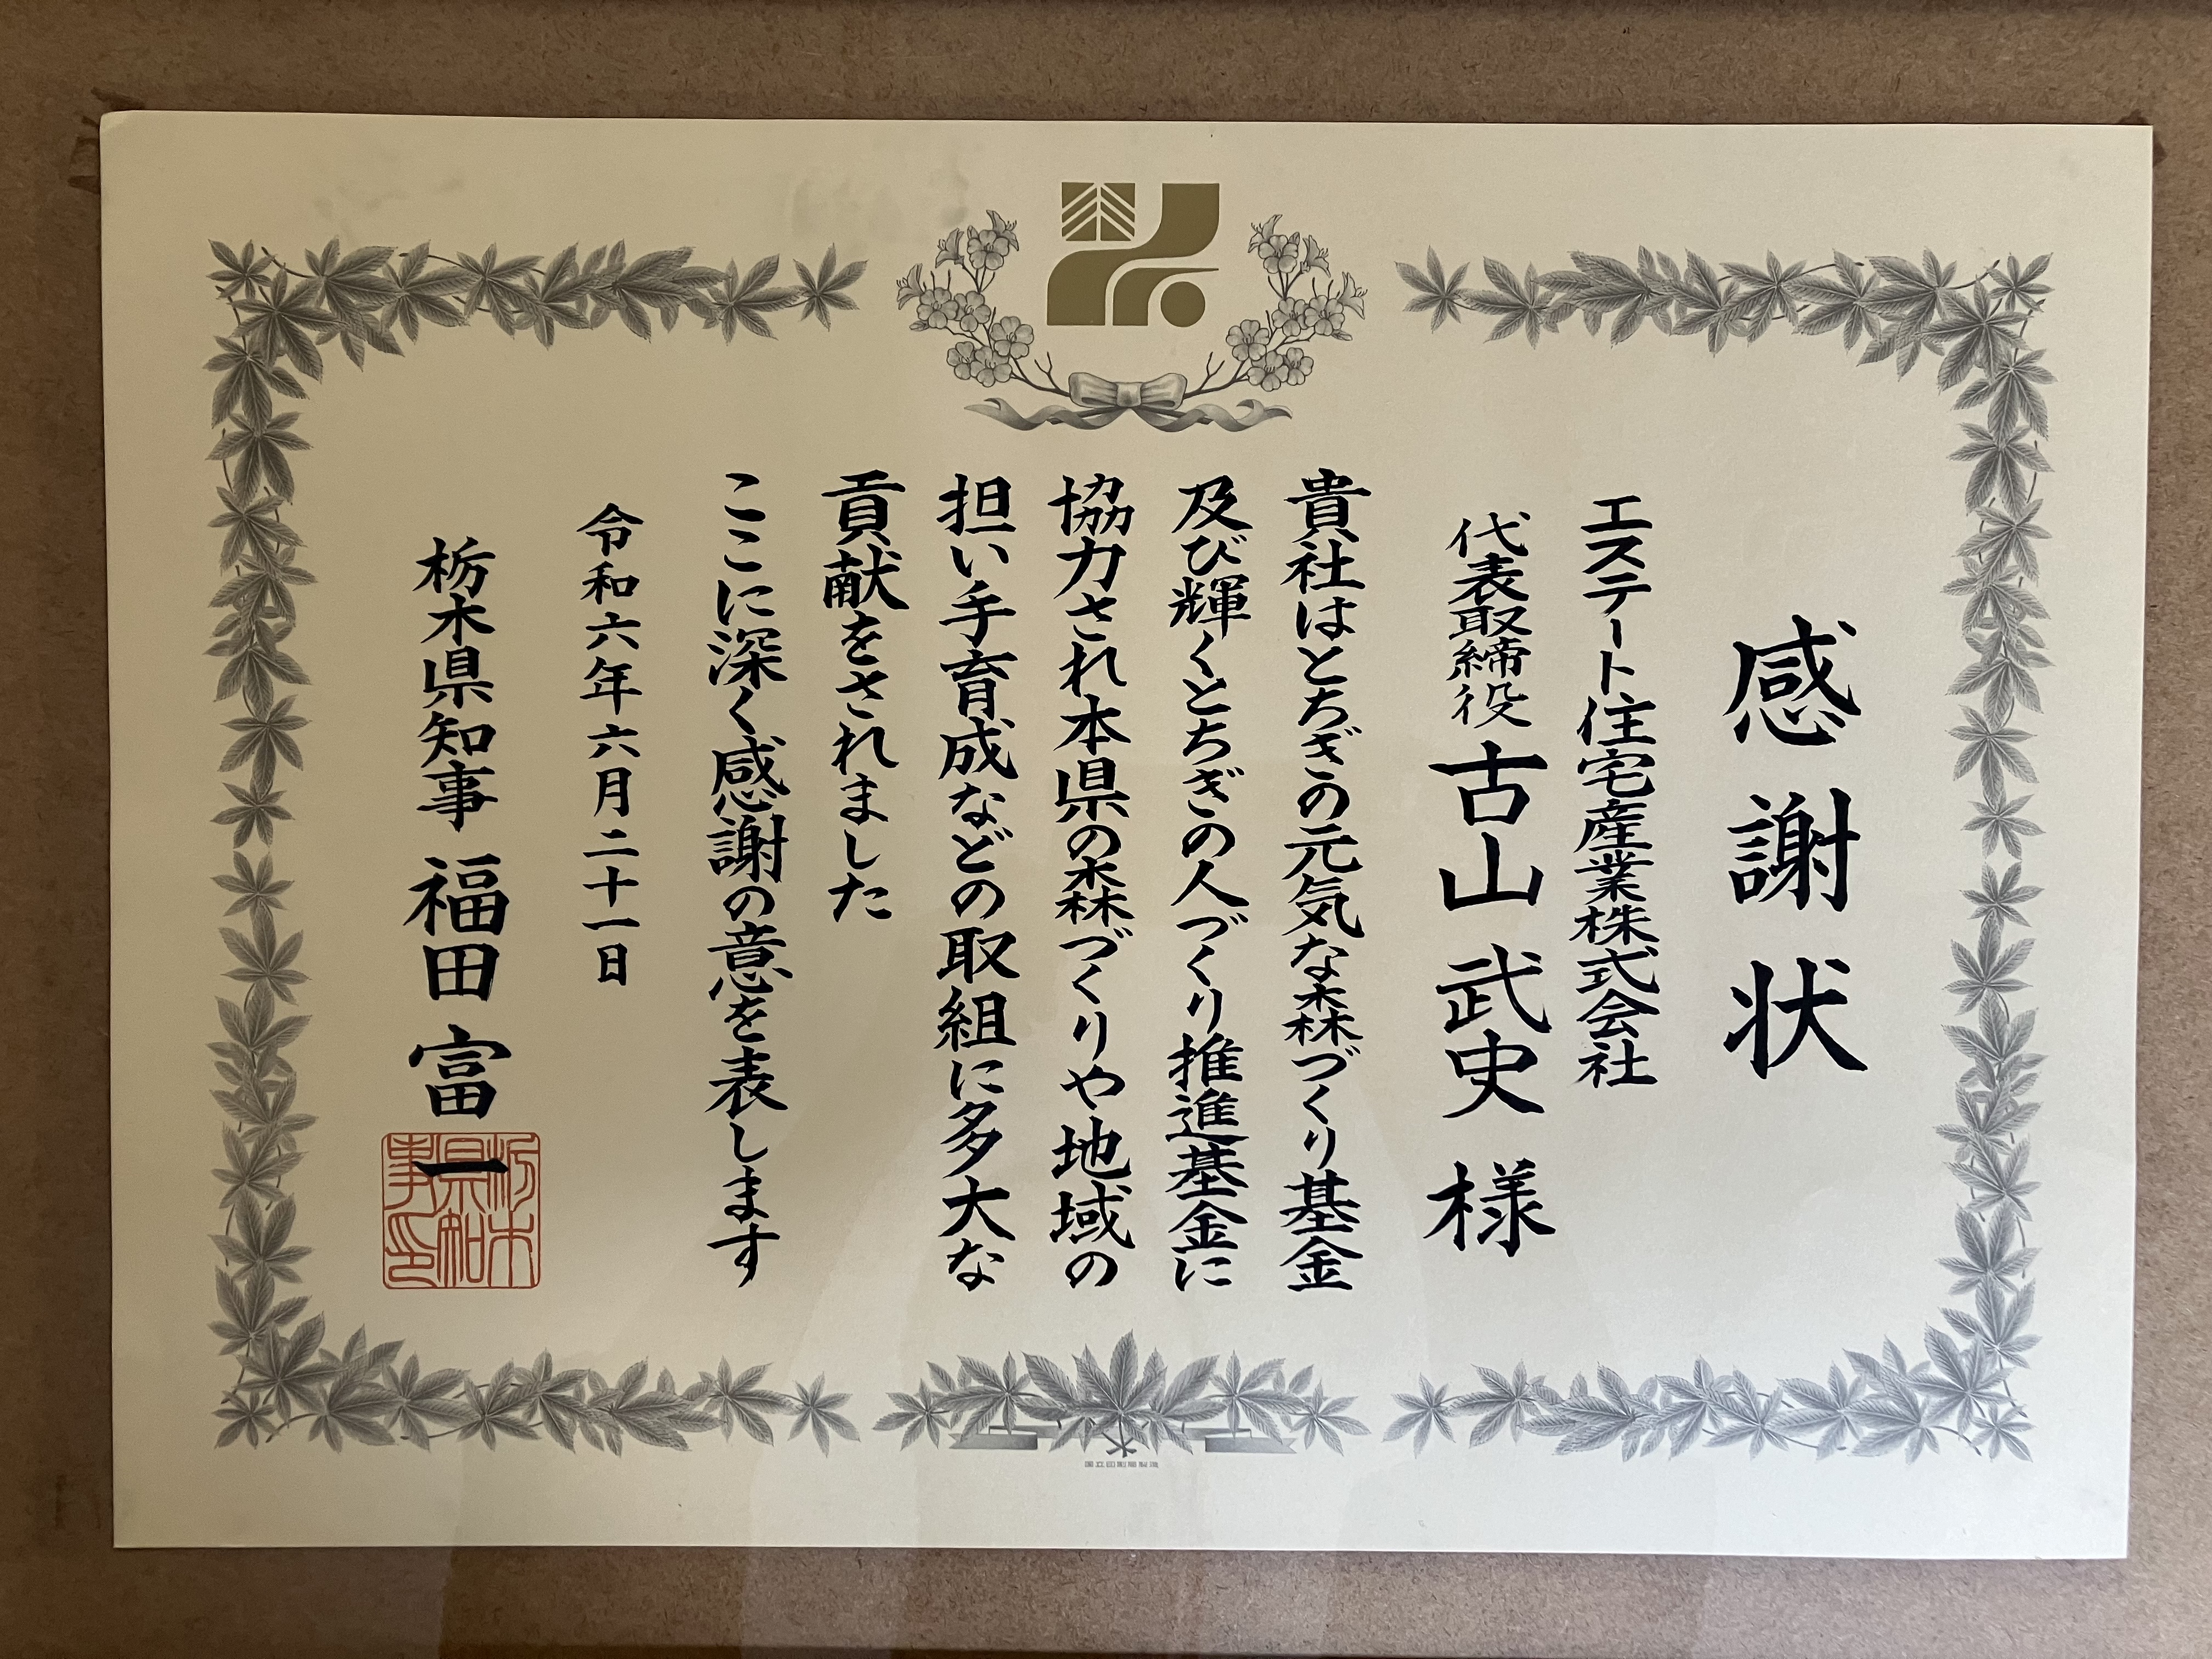 感謝状
エステート住宅産業株式会社
代表取締役 古山 武史 様
貴社はとちぎの元気な森づくり基金
及び輝くとちぎの人づくり推進基金に
協力され本県の森づくりや地域の
担い手育成などの取組に多大な
貢献をされました
ここに深く感謝の意を表します
令和六年六月二十一日
栃木県知事 福田 富一
栃木
県知
事印
国立印刷局製造